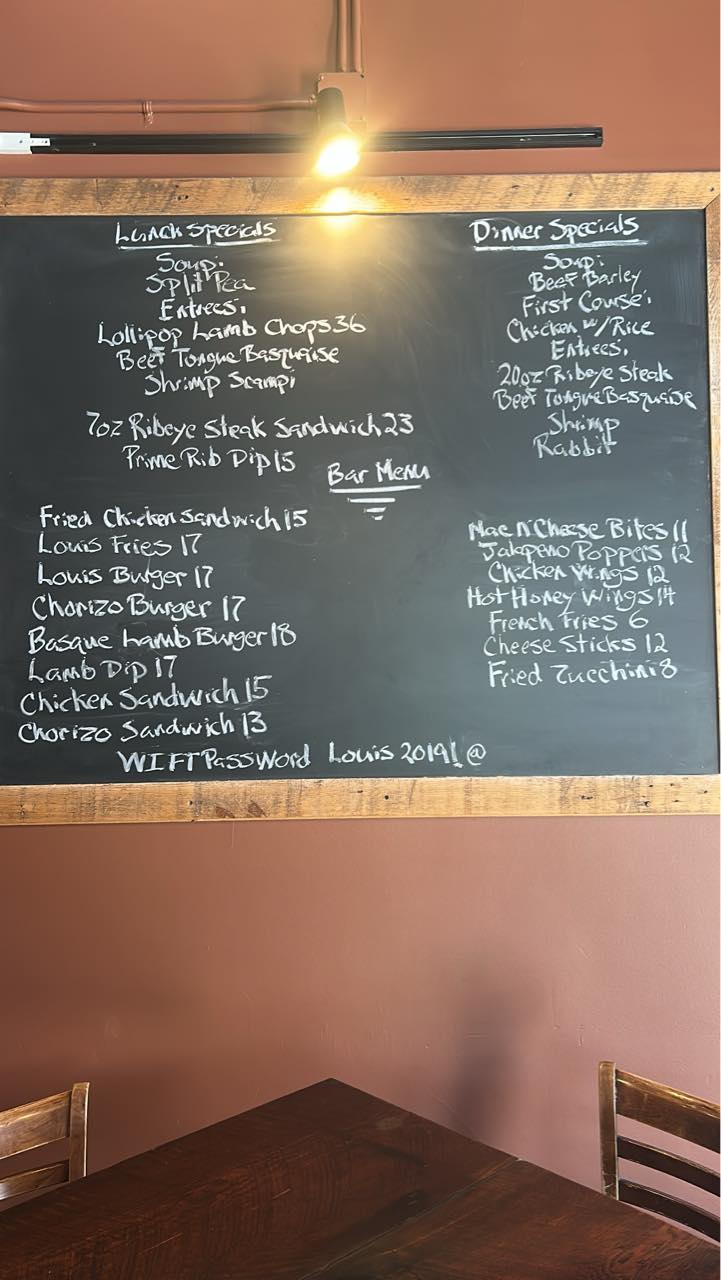 Lunch Specials
Soup:
Split Pea
Entrees:
Lollipop Lamb Chops 36
Beef Tongue Basquaise
Shrimp Scampi
7oz Ribeye Steak Sandwich 23
Prime Rib Dip 15
Dinner Specials
Soup:
Beef Barley
First Course:
Chicken w/Rice
Entrees:
20oz Ribeye Steak
Beef Tongue Basquaise
Shrimp
Rabbit
Bar Menu
Fried Chicken Sandwich 15
Louis Fries 17
Louis Burger 17
Chorizo Burger 17
Basque Lamb Burger 18
Lamb Dip 17
Chicken Sandwich 15
Chorizo Sandwich 13
Mac N Cheese Bites 11
Jalapeno Poppers 12
Chicken Wings 12
Hot Honey Wings 14
French Fries 6
Cheese Sticks 12
Fried Zucchini 8
WIFI PassWord Louis 2019!@